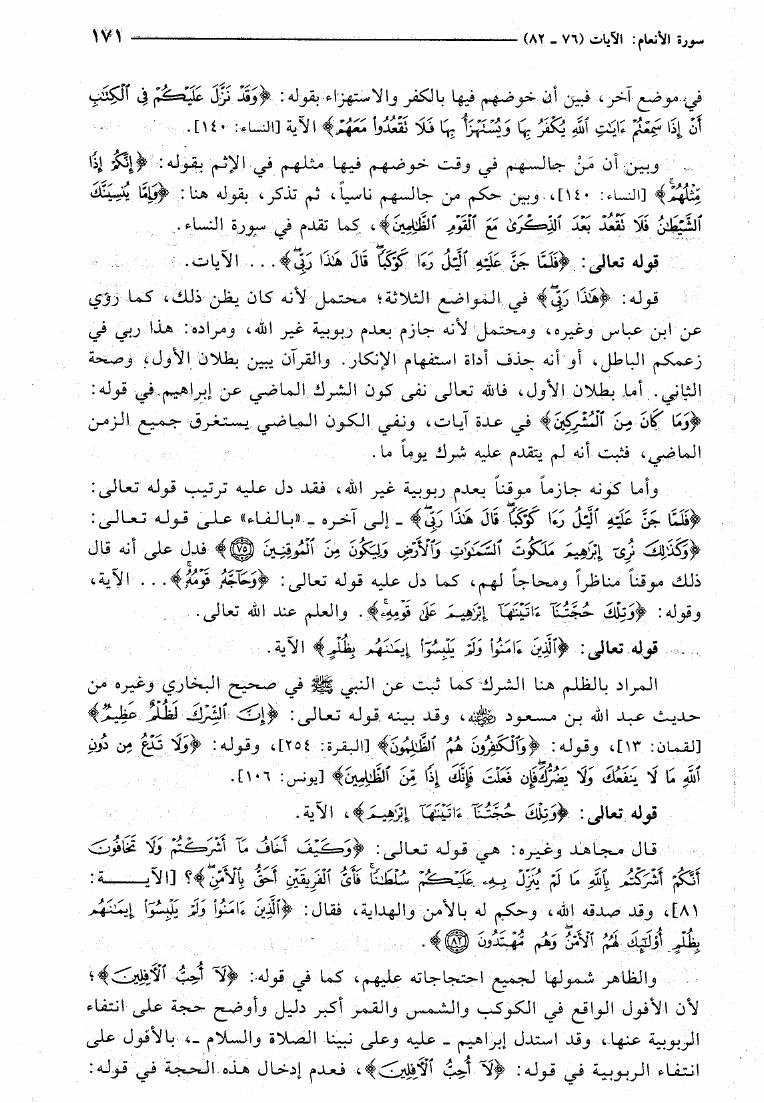 سورة الأنعام: الآيات (٧٦ - ٨٢) ١٧١
في موضع آخر، فبين أن خوضهم فيها بالكفر والاستهزاء بقوله: ﴿وَقَدْ نَزَّلَ عَلَيْكُمْ فِي الْكِتَابِ
أَنْ إِذَا سَمِعْتُمْ ءَايَاتِ اللَّهِ يُكْفَرُ بِهَا وَيُسْتَهْزَأُ بِهَا فَلَا تَقْعُدُوا مَعَهُمْ﴾ الآية [النساء: ١٤٠].
وبين أن مَنْ جالسهم في وقت خوضهم فيها مثلهم في الإثم بقوله: ﴿إِنَّكُمْ إِذًا
مِّثْلُهُمْ﴾ [النساء: ١٤٠]، وبين حكم من جالسهم ناسياً، ثم تذكر، بقوله هنا: ﴿وَإِمَّا يُنسِيَنَّكَ
الشَّيْطَانُ فَلَا تَقْعُدْ بَعْدَ الذِّكْرَىٰ مَعَ الْقَوْمِ الظَّالِمِينَ﴾، كما تقدم في سورة النساء.
قوله تعالى: ﴿فَلَمَّا جَنَّ عَلَيْهِ الَّيْلُ رَءَا كَوْكَبًا قَالَ هَٰذَا رَبِّي﴾... الآيات.
قوله: ﴿هَٰذَا رَبِّي﴾ في المواضع الثلاثة؛ محتمل لأنه كان يظن ذلك، كما رؤي
عن ابن عباس وغيره، ومحتمل لأنه جازم بعدم ربوبية غير الله، ومراده: هذا ربي في
زعمكم الباطل، أو أنه حذف أداة استفهام الإنكار. والقرآن يبين بطلان الأول، وصحة
الثاني. أما بطلان الأول، فالله تعالى نفى كون الشرك الماضي عن إبراهيم في قوله:
﴿وَمَا كَانَ مِنَ الْمُشْرِكِينَ﴾ في عدة آيات، ونفي الكون الماضي يستغرق جميع الزمن
الماضي، فثبت أنه لم يتقدم عليه شرك يوماً ما.
وأما كونه جازماً موقناً بعدم ربوبية غير الله، فقد دل عليه ترتيب قوله تعالى:
﴿فَلَمَّا جَنَّ عَلَيْهِ الَّيْلُ رَءَا كَوْكَبًا قَالَ هَٰذَا رَبِّي﴾ ـ إلى آخره ـ «بالفاء» على قوله تعالى:
﴿وَكَذَٰلِكَ نُرِي إِبْرَاهِيمَ مَلَكُوتَ السَّمَاوَاتِ وَالْأَرْضِ وَلِيَكُونَ مِنَ الْمُوقِنِينَ ٧٥﴾ فدل على أنه قال
ذلك موقناً مناظراً ومحاجاً لهم، كما دل عليه قوله تعالى: ﴿وَحَاجَّهُ قَوْمُهُ﴾... الآية،
وقوله: ﴿وَتِلْكَ حُجَّتُنَا ءَاتَيْنَاهَا إِبْرَاهِيمَ عَلَىٰ قَوْمِهِ﴾. والعلم عند الله تعالى.
قوله تعالى: ﴿الَّذِينَ ءَامَنُوا وَلَمْ يَلْبِسُوا إِيمَانَهُم بِظُلْمٍ﴾ الآية.
المراد بالظلم هنا الشرك كما ثبت عن النبي ﷺ في صحيح البخاري وغيره من
حديث عبد الله بن مسعود رضي الله عنه، وقد بينه قوله تعالى: ﴿إِنَّ الشِّرْكَ لَظُلْمٌ عَظِيمٌ﴾
[لقمان: ١٣]، وقوله: ﴿وَالْكَافِرُونَ هُمُ الظَّالِمُونَ﴾ [البقرة: ٢٥٤]، وقوله: ﴿وَلَا تَدْعُ مِن دُونِ
اللَّهِ مَا لَا يَنفَعُكَ وَلَا يَضُرُّكَ فَإِن فَعَلْتَ فَإِنَّكَ إِذًا مِّنَ الظَّالِمِينَ﴾ [يونس: ١٠٦].
قوله تعالى: ﴿وَتِلْكَ حُجَّتُنَا ءَاتَيْنَاهَا إِبْرَاهِيمَ﴾، الآية.
قال مجاهد وغيره: هي قوله تعالى: ﴿وَكَيْفَ أَخَافُ مَا أَشْرَكْتُمْ وَلَا تَخَافُونَ
أَنَّكُمْ أَشْرَكْتُم بِاللَّهِ مَا لَمْ يُنَزِّلْ بِهِ عَلَيْكُمْ سُلْطَانًا فَأَيُّ الْفَرِيقَيْنِ أَحَقُّ بِالْأَمْنِ﴾؟ [الآيـــة:
٨١]، وقد صدقه الله، وحكم له بالأمن والهداية، فقال: ﴿الَّذِينَ ءَامَنُوا وَلَمْ يَلْبِسُوا إِيمَانَهُم
بِظُلْمٍ أُولَٰئِكَ لَهُمُ الْأَمْنُ وَهُم مُّهْتَدُونَ ٨٢﴾.
والظاهر شمولها لجميع احتجاجاته عليهم، كما في قوله: ﴿لَا أُحِبُّ الْآفِلِينَ﴾؛
لأن الأفول الواقع في الكوكب والشمس والقمر أكبر دليل وأوضح حجة على انتفاء
الربوبية عنها، وقد استدل إبراهيم ـ عليه وعلى نبينا الصلاة والسلام ـ، بالأفول على
انتفاء الربوبية في قوله: ﴿لَا أُحِبُّ الْآفِلِينَ﴾، فعدم إدخال هذه الحجة في قوله: